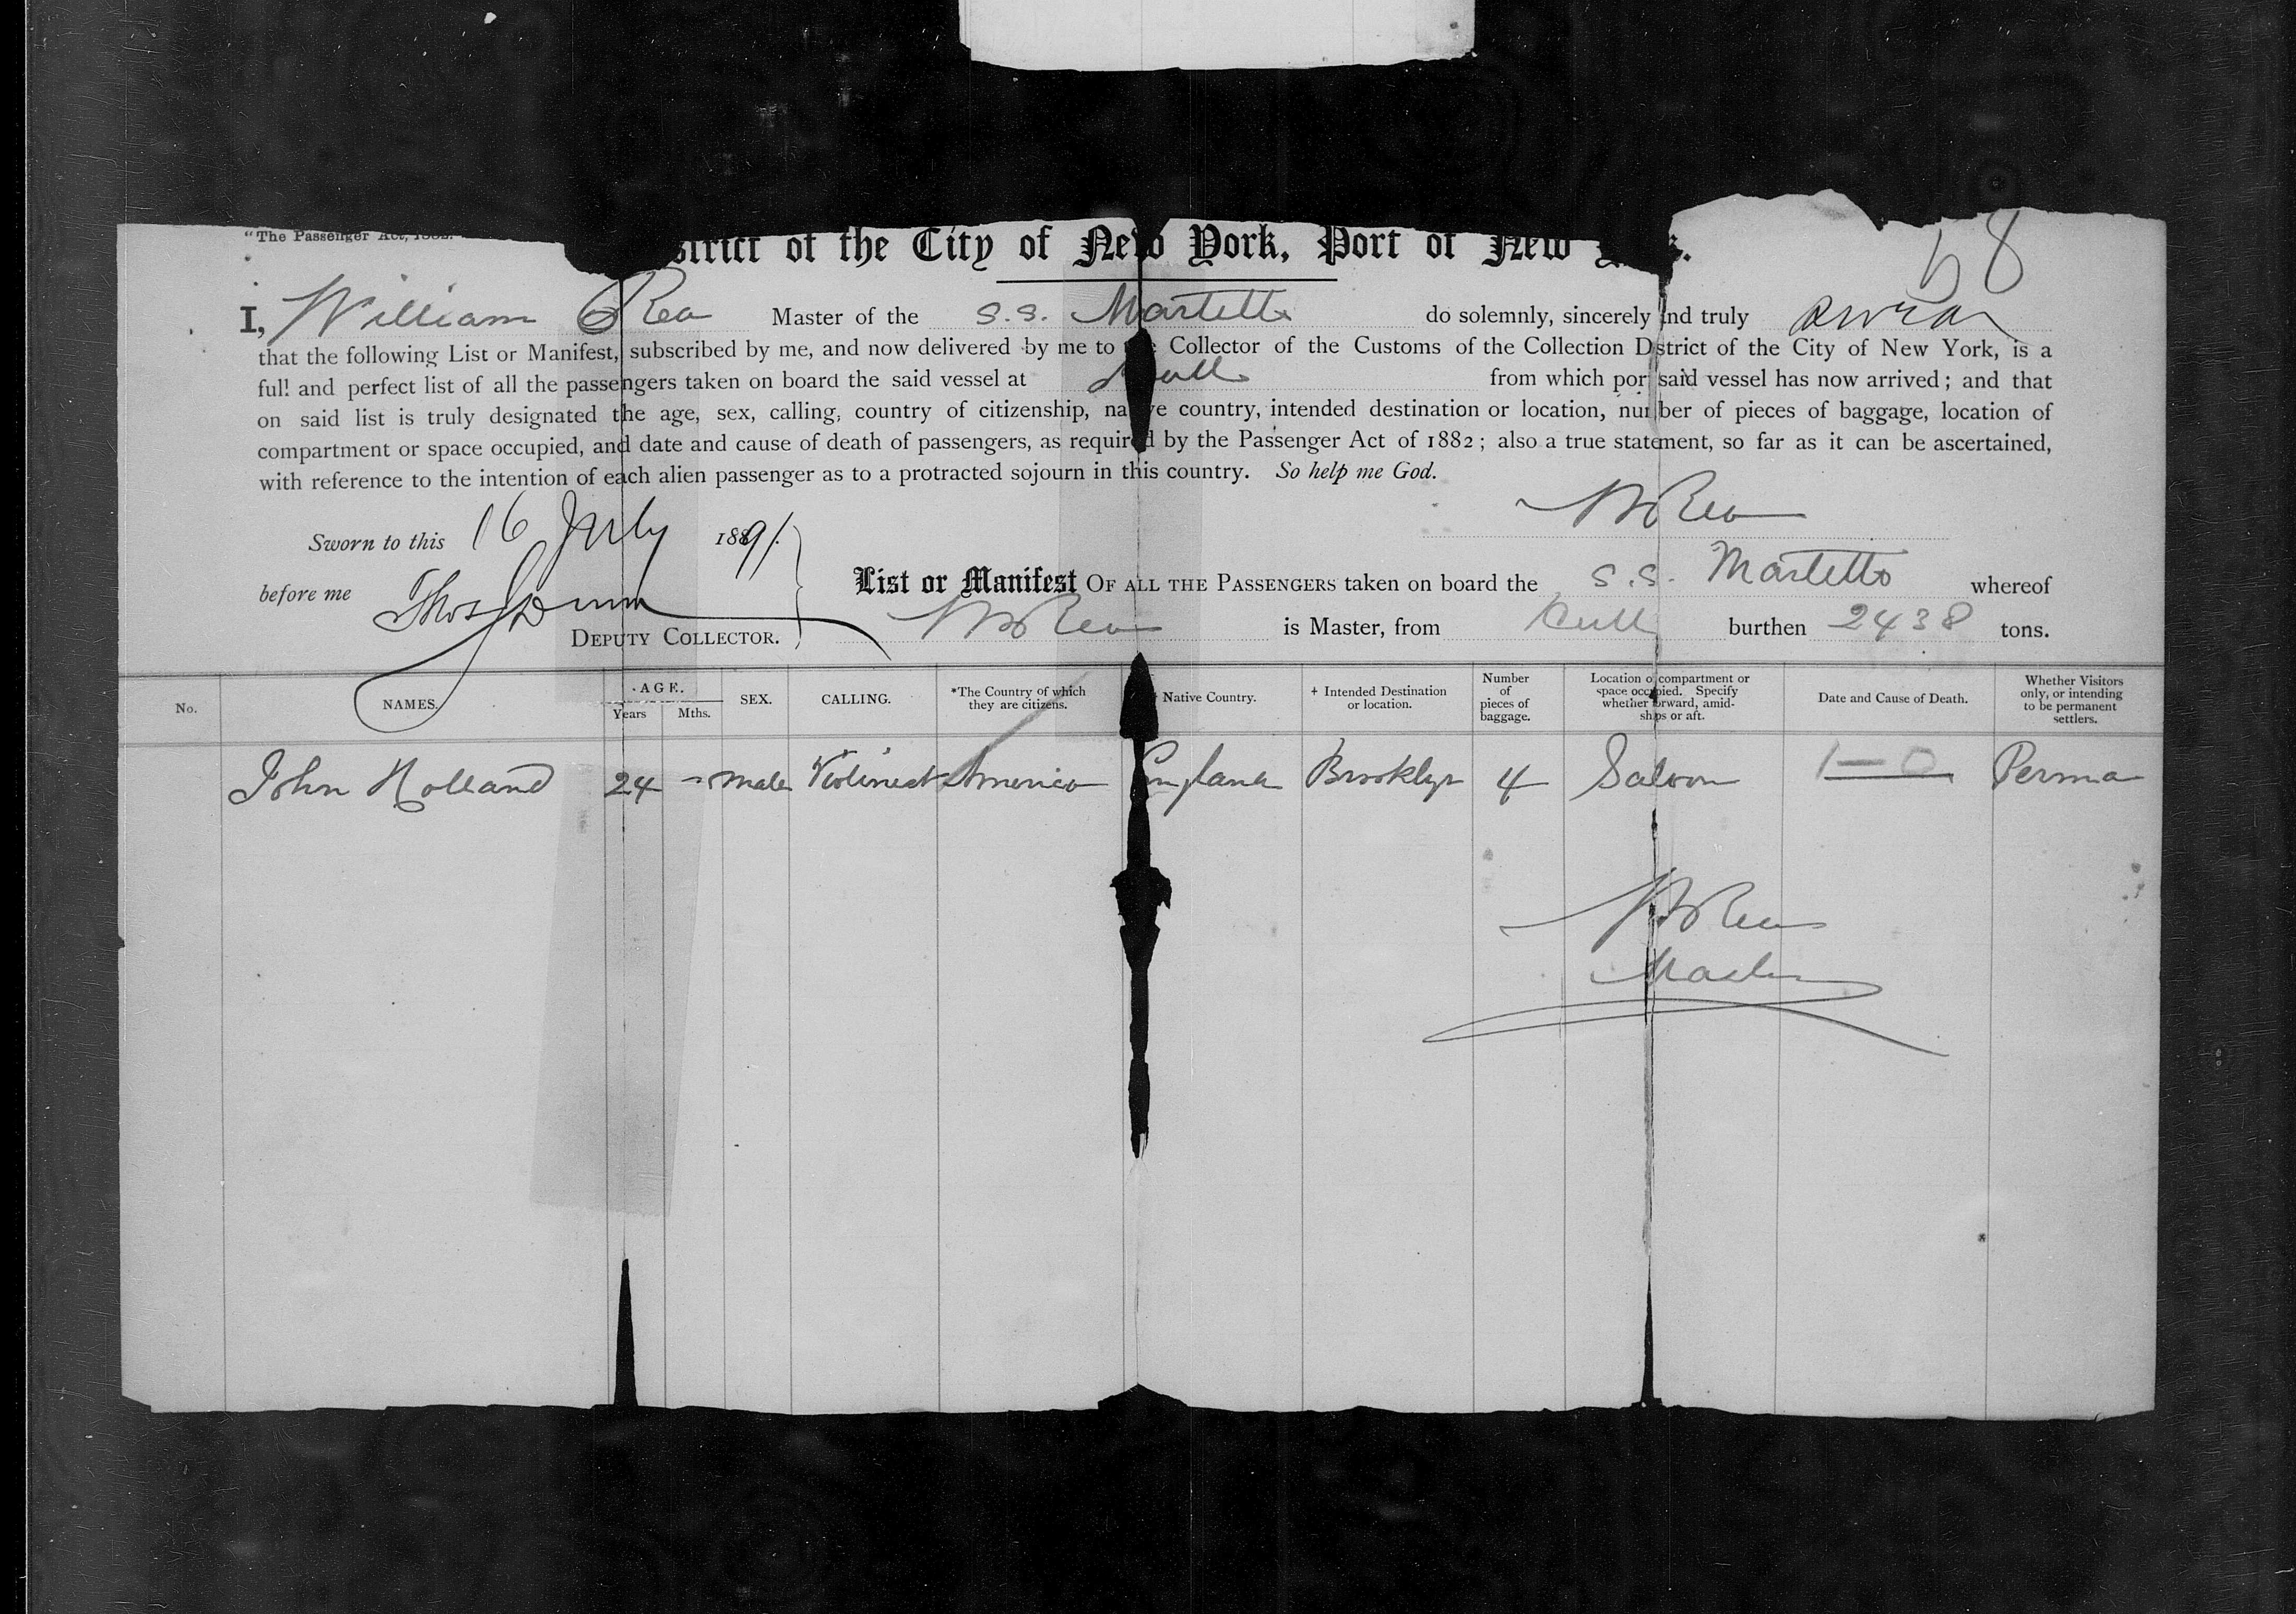 "The Passenger Act, 1882."
strict of the City of New York, Port of New
68
I, William Rea Master of the S.S. Martello do solemnly, sincerely and truly swear
that the following List or Manifest, subscribed by me, and now delivered by me to the Collector of the Customs of the Collection District of the City of New York, is a
full and perfect list of all the passengers taken on board the said vessel at Hull from which port said vessel has now arrived; and that
on said list is truly designated the age, sex, calling, country of citizenship, native country, intended destination or location, number of pieces of baggage, location of
compartment or space occupied, and date and cause of death of passengers, as required by the Passenger Act of 1882; also a true statement, so far as it can be ascertained,
with reference to the intention of each alien passenger as to a protracted sojourn in this country. So help me God.
Rea
Sworn to this 16 July 1891.
before me Thos Dunn
DEPUTY COLLECTOR.
List or Manifest OF ALL THE PASSENGERS taken on board the S.S. Martello whereof
Rea is Master, from Hull burthen 2438 tons.
No. NAMES. AGE. Years Mths. SEX. CALLING. *The Country of which they are citizens. Native Country. + Intended Destination or location. Number of pieces of baggage. Location of compartment or space occupied. Specify whether forward, amidships or aft. Date and Cause of Death. Whether Visitors only, or intending to be permanent settlers.
John Holland 24 - Male Violinist America England Brooklyn 4 Saloon 1-0 Perma
Rea
Master